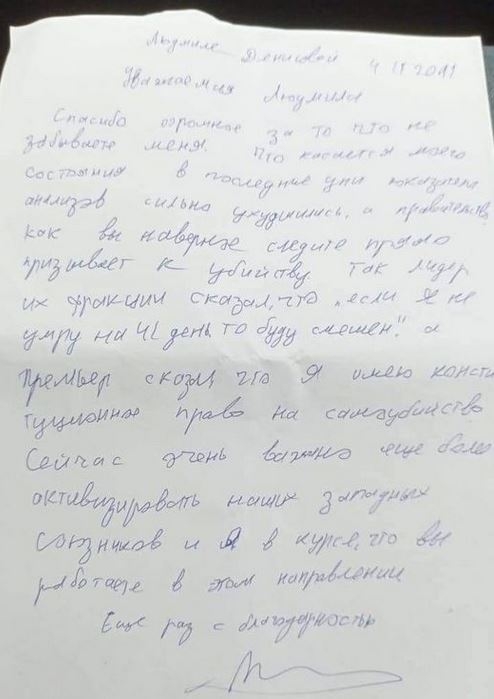 Людмиле Денисовой 4 11 2011
Уважаемия Людмила
Спасибо огромное за то что не
забываете меня. Что касается моего
состояния в последние дни показатели
анализов сильно ухудшились, а правительство,
как вы наверное следите прямо
призывает к убийству. Так лидер
их фракции сказал, что „если я не
умру на 41 день, то буду смешен". а
Премьер сказал, что я имею консти
туционное право на самоубийство
Сейчас очень важно еще более
активизировать наших западных
союзников и я в курсе, что вы
работаете в этом направлении
Еще раз с благодарностью